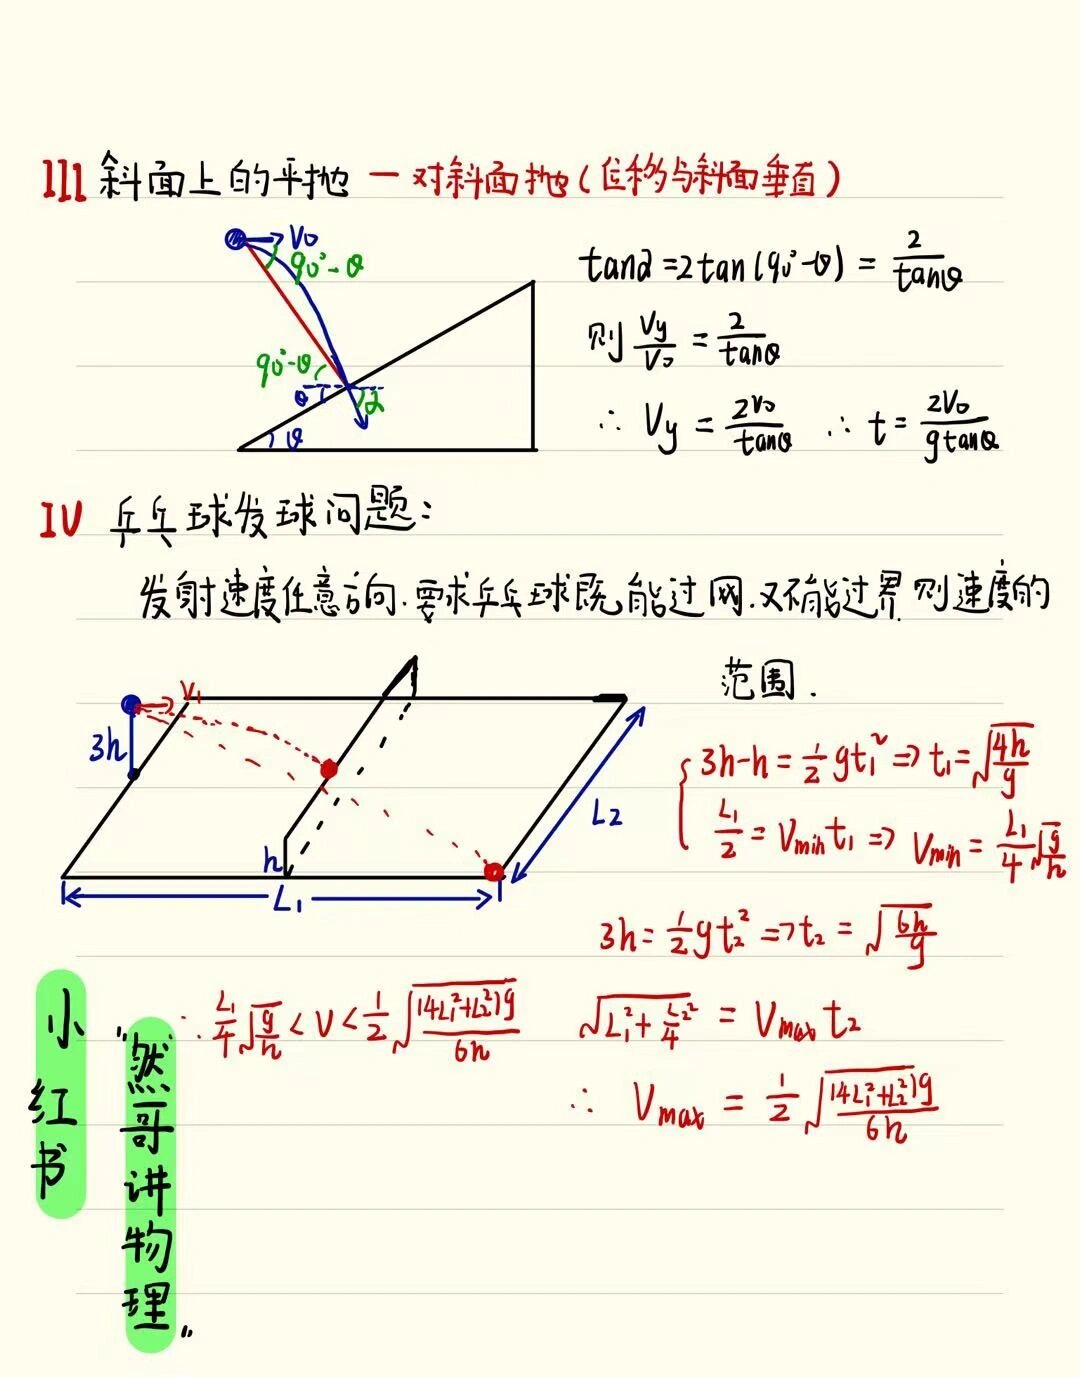 III 斜面上的平抛 — 对斜面抛(位移与斜面垂直)
V₀
90°-θ
90°-θ
θ
α
θ
tanα=2tan(90°-θ)=2/tanθ
则 Vy/V₀ = 2/tanθ
∴ Vy = 2V₀/tanθ ∴ t = 2V₀/gtanθ
IV 乒乓球发球问题:
发射速度任意方向.要求乒乓球既能过网.又不能过界.则速度的
范围.
V₁
3h
h
L₁
L₂
3h-h=½gt₁² ⇒ t₁=√(4h/g)
L₁/2 = Vmin t₁ ⇒ Vmin = L₁/4 √(g/h)
3h=½gt₂² ⇒ t₂ = √(6h/g)
∴ L₁/4 √(g/h) < V < ½ √((4L₁²+L₂²)g/6h)
√(L₁²+L₂²/4) = Vmax t₂
∴ Vmax = ½ √((4L₁²+L₂²)g/6h)
小红书
"然哥讲物理"